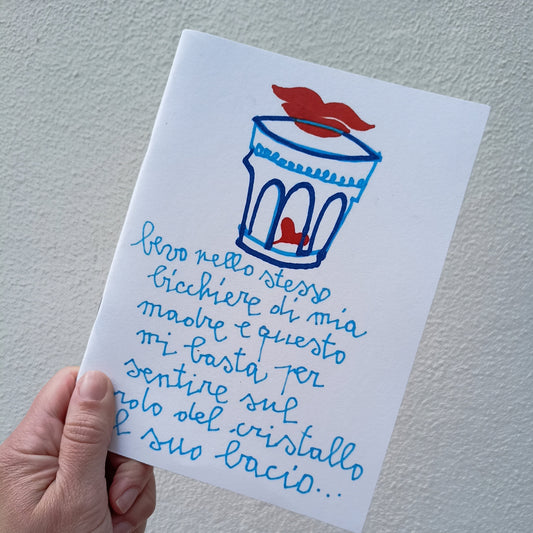 bevo nello stesso
bicchiere di mia
madre e questo
mi basta per
sentire sul
del cristallo
suo bacio...